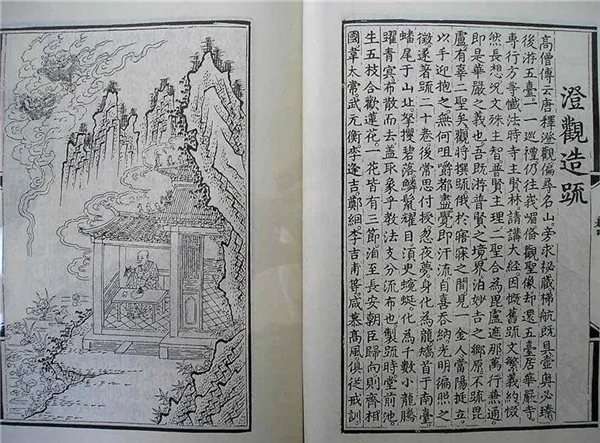 澄觀造疏
高僧傳云唐釋澄觀徧尋名山旁求祕藏梯航既具壼奧必臻
後游五臺一一巡禮仍往峩嵋備觀聖像却還五臺居華嚴寺
專行方等懺法時寺主賢林請講大經因慨舊疏文繁義約惙
然長想況文殊主智普賢主理二聖合為毘盧遮那萬行兼通
即是華嚴之義也吾既游普賢之境界泊妙吉之鄉原不疏毘
盧有辜二聖矣觀將撰疏俄於寤寐之間見一金人當陽挺立
以手迎抱之無何咀嚼都盡覺即汗流自喜吞納光明徧照之
徵遂著疏二十卷後常思付授忽夜夢身化為龍矯首于南臺
蟠尾于山北拏攫碧落鱗鬣耀日須臾蜿蜒化為千數小龍騰
躍青冥布散而去蓋取象乎教法支分流布也製疏時堂前池
生五枝合歡蓮花一花皆有三節洎至長安朝臣歸向則齊相
國韋太常武元衡李逢吉鄭絪李吉甫等咸慕高風俱從戒訓